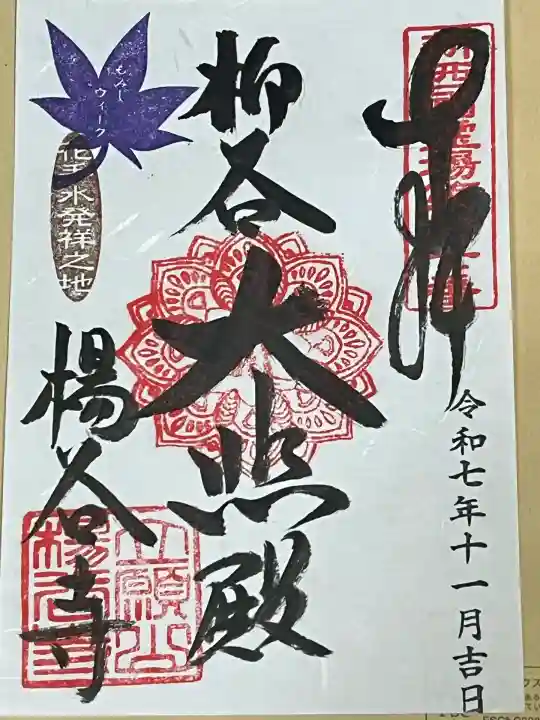 奉拝
令和七年十一月吉日
柳谷
大悲殿
もみじ
ウィーク
花手水発祥之地
楊谷寺
立願山
楊谷寺